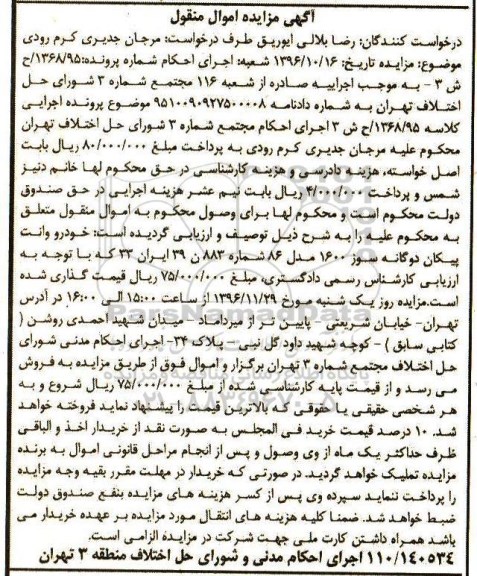 آگهی مزایده اموال منقول
درخواست کنندگان: رضا بلالی ایوریق طرف درخواست: مرجان جدیری کرم رودی
موضوع: مزایده تاریخ: ۱۳۹۶/۱۰/۱۶ شعبه: اجرای احکام شماره پرونده:۱۳۶۸/۹۵/ح
ش ۳ - به موجب اجراییه صادره از شعبه ۱۱۶ مجتمع شماره ۳ شورای حل
اختلاف تهران به شماره دادنامه ۹۵۱۰۰۹۰۹۲۷۵۰۰۰۰۸ موضوع پرونده اجرایی
کلاسه ۱۳۶۸/۹۵/ح ش ۳ اجرای احکام مجتمع شماره ۳ شورای حل اختلاف تهران
محکوم علیه مرجان جدیری کرم رودی به پرداخت مبلغ ۸۰/۰۰۰/۰۰۰ ریال بابت
اصل خواسته، هزینه دادرسی و هزینه کارشناسی در حق محکوم لها خانم دنیز
شمس و پرداخت ۴/۰۰۰/۰۰۰ ریال بابت نیم عشر هزینه اجرایی در حق صندوق
دولت محکوم است و محکوم لها برای وصول محکوم به اموال منقول متعلق
به محکوم علیه را به شرح ذیل توصیف و ارزیابی گردیده است: خودرو وانت
پیکان دوگانه سوز ۱۶۰۰ مدل ۸۶ شماره ۸۸۳ ن ۳۹ ایران ۳۳ که با توجه به
ارزیابی کارشناس رسمی دادگستری، مبلغ ۷۵/۰۰۰/۰۰۰ ریال قیمت گذاری شده
است.مزایده روز یک شنبه مورخ ۱۳۹۶/۱۱/۲۹ از ساعت ۱۵:۰۰ الی ۱۶:۰۰ در آدرس
تهران- خیابان شریعتی - پایین تر از میرداماد - میدان شهید احمدی روشن (
کتابی سابق ) - کوچه شهید داود گل نبی - پلاک ۳۴- اجرای احکام مدنی شورای
حل اختلاف مجتمع شماره ۳ تهران برگزار و اموال فوق از طریق مزایده به فروش
می رسد و از قیمت پایه کارشناسی شده از مبلغ ۷۵/۰۰۰/۰۰۰ ریال شروع و به
هر شخصی حقیقی یا حقوقی که بالاترین قیمت را پیشنهاد نماید فروخته خواهد
شد. ۱۰ درصد قیمت خرید فی المجلس به صورت نقد از خریدار اخذ و الباقی
ظرف حداکثر یک ماه از وی وصول و پس از انجام مراحل قانونی اموال به برنده
مزایده تملیک خواهد گردید. در صورتی که خریدار در مهلت مقرر بقیه وجه مزایده
را پرداخت ننماید سپرده وی پس از کسر هزینه های مزایده بنفع صندوق دولت
ضبط خواهد شد. ضمنا کلیه هزینه های انتقال مورد مزایده بر عهده خریدار می
باشد همراه داشتن کارت ملی جهت شرکت در مزایده الزامی است.
۱۱۰/۱۴۰۵۳۴ اجرای احکام مدنی و شورای حل اختلاف منطقه ۳ تهران